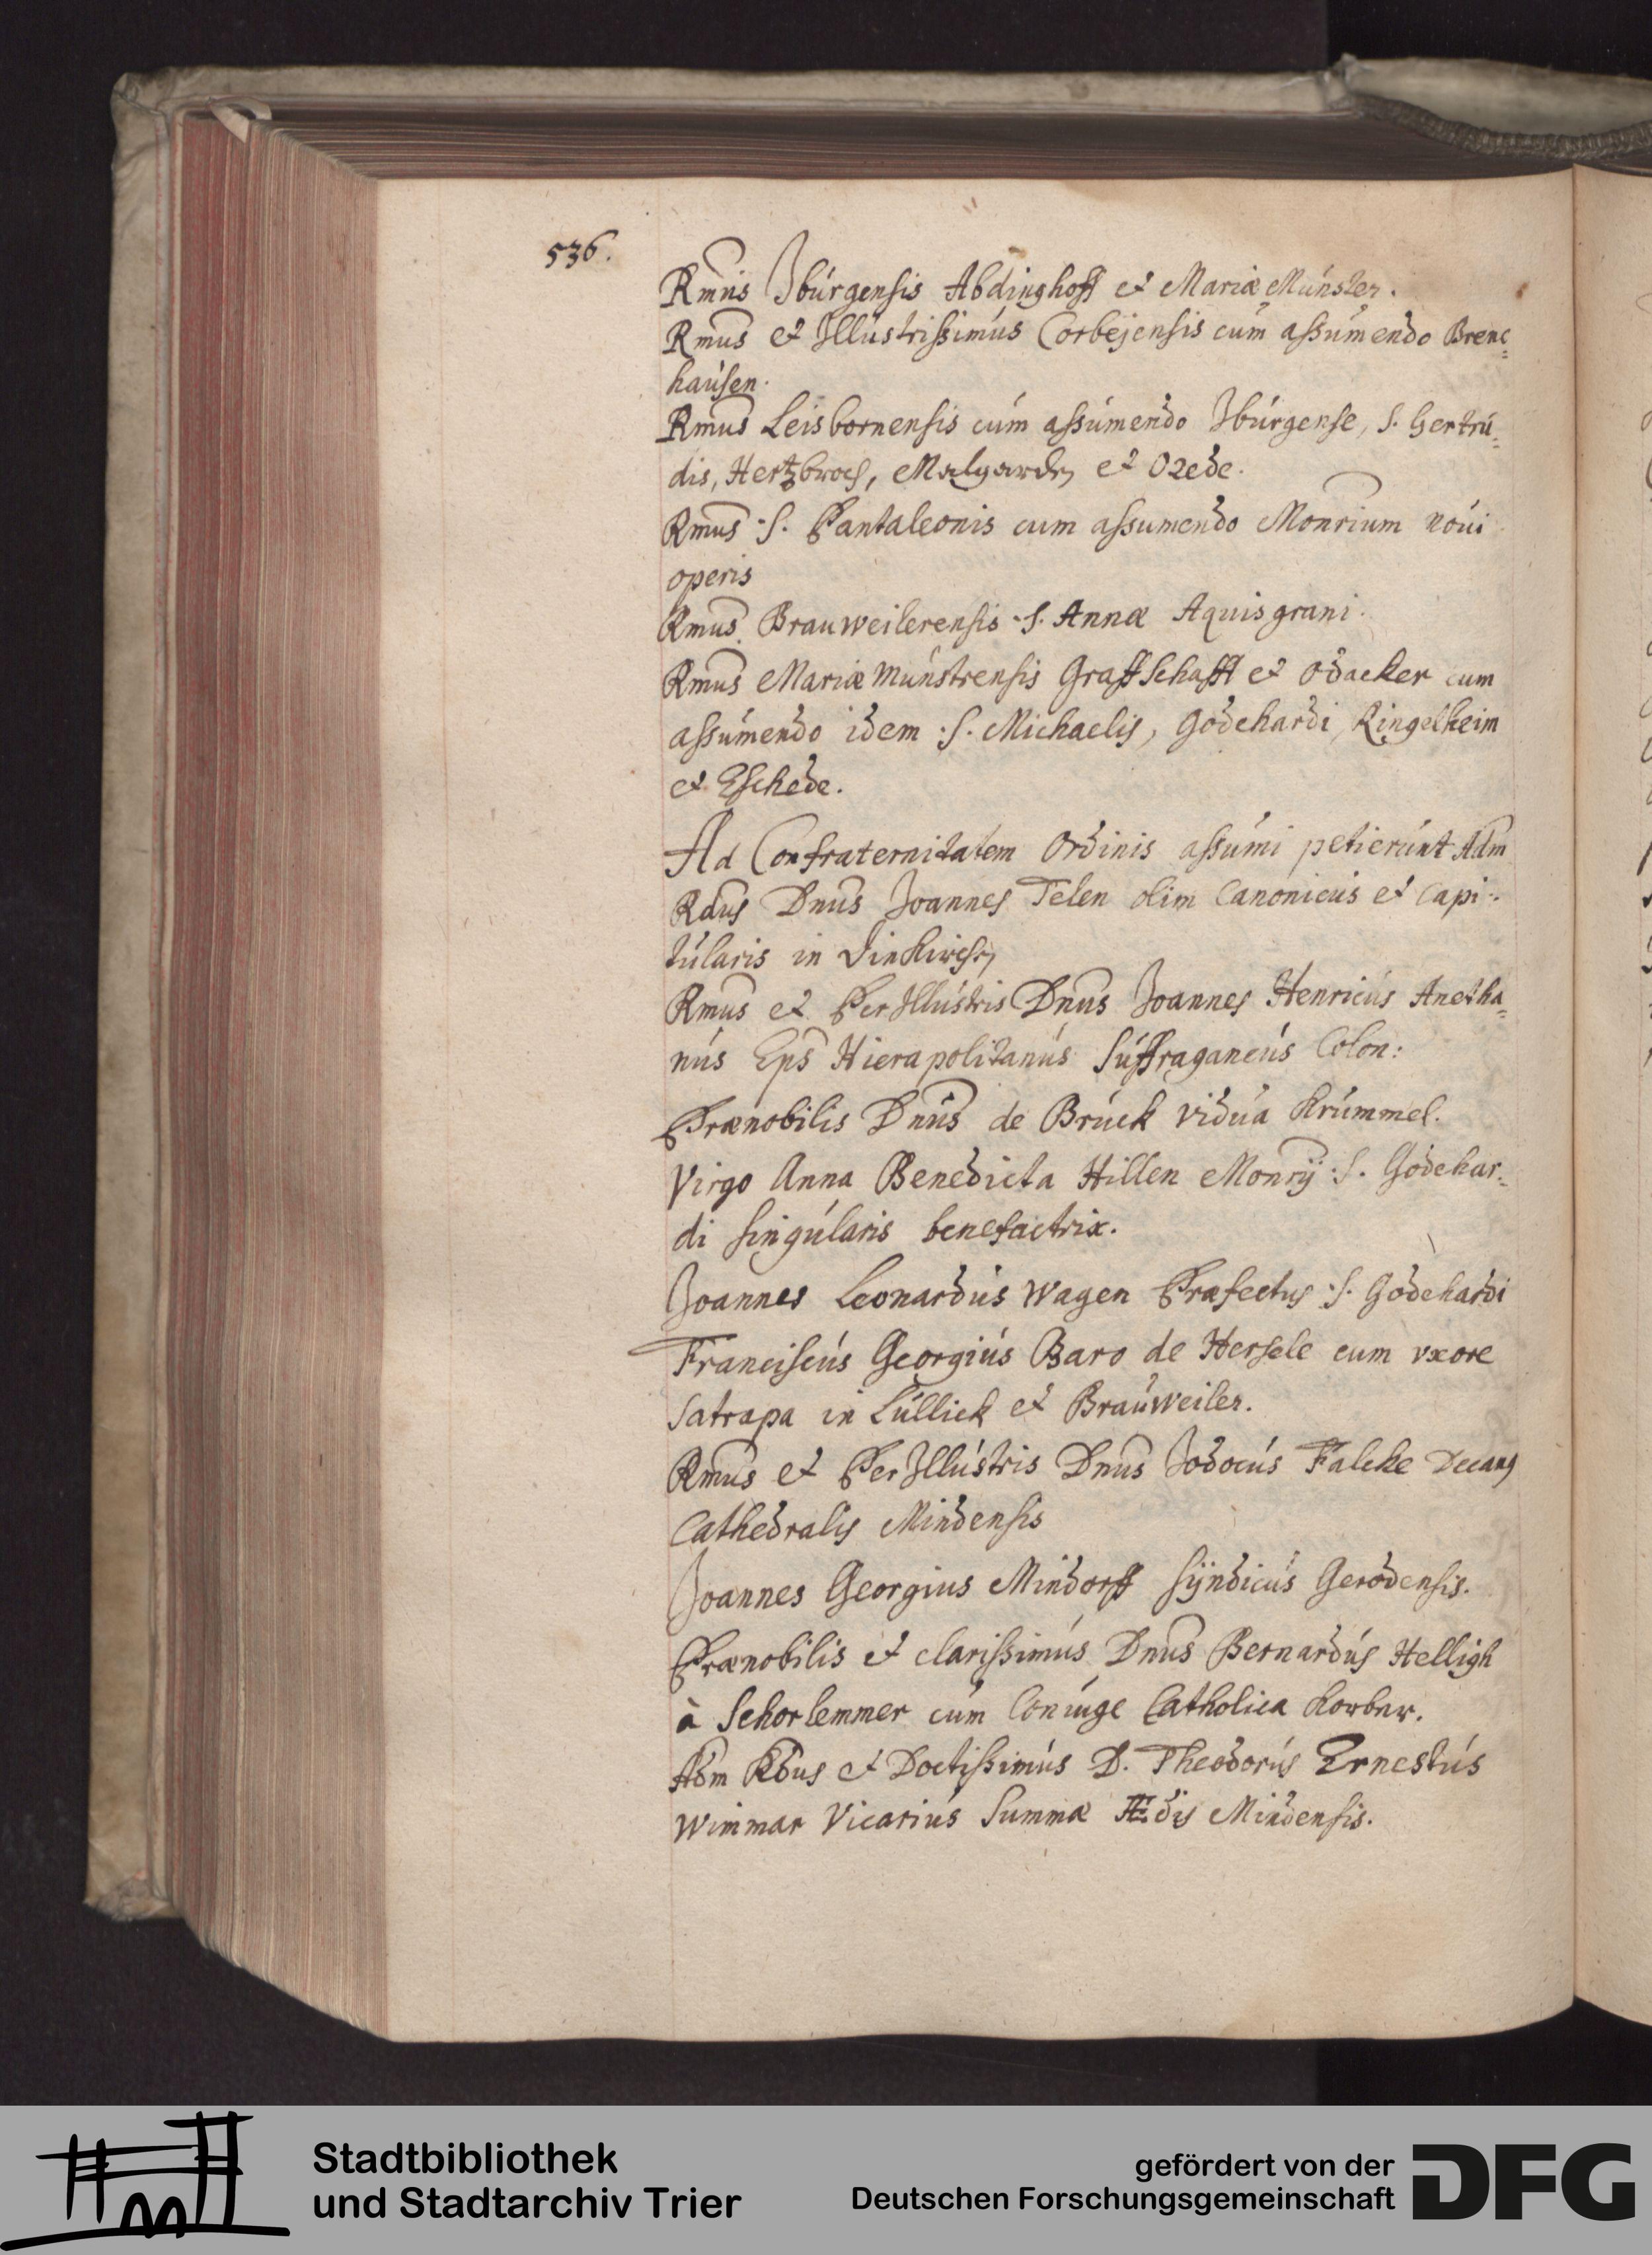 536.
Rmus Iburgensis Abdinghoff et Mariæ Münster.
Rmus et Illustrissimus Corbejensis cum assumendo Brenc=
hausen.
Rmus Leisbornensis cum assumendo Iburgense, S. Gertru=
dis, Hertzbroch, Malgarden et Ozede.
Rmus S. Pantaleonis cum assumendo Monrium novi
operis
Rmus Brauweilerensis S. Annæ Aquisgrani.
Rmus Mariæ Munstrensis Graffschafft et Odacker cum
assumendo idem S. Michaelis, Godehardi, Ringelheim
et Eschede.
Ad Confraternitatem Ordinis assumi petierunt Adm
Rdus Dnus Joannes Telen olim Canonicus et Capi=
tularis in
Rmus et PerIllustris Dnus Joannes Henricus Anetha=
nus Eps Hierapolitanus Suffraganeus Colon:
Prænobilis Dnus de Bruck vidua Krummel.
Virgo Anna Benedicta Hillen Monrij S. Godehar=
di singularis benefactrix.
Joannes Leonardus Wagen Præfectus S. Godehardi
Franciscus Georgius Baro de Hersele cum vxore
Satrapa in Lullick et Brauweiler.
Rmus et PerIllustris Dnus Jodocus Falcke Decanus
Cathedralis Mindensis
Joannes Georgius Mindorff Sÿndicus Gerodensis.
Prænobilis et clarissimus Dnus Bernardus Helligh
à Schorlemmer cum Coniuge Catholica Korber.
Adm Rdus et Doctissimus D. Theodorus Ernestus
Wimmar Vicarius Summæ Ædis Mindensis.
Stadtbibliothek
und Stadtarchiv Trier
gefördert von der
Deutschen Forschungsgemeinschaft
DFG